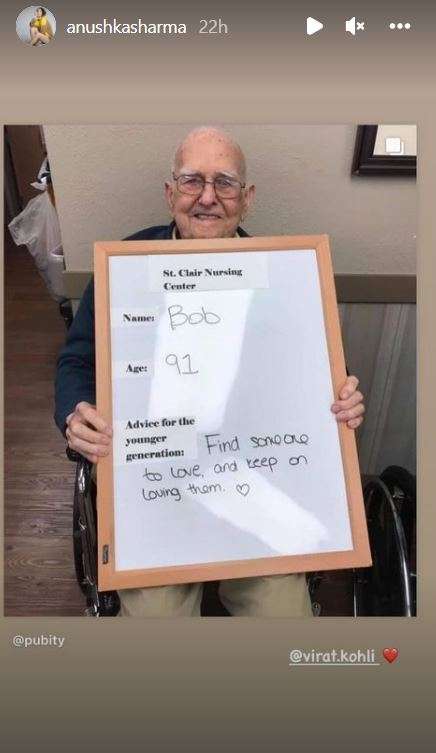 anushkasharma 22h
St. Clair Nursing
Center
Name: Bob
Age: 91
Advice for the
younger
generation: Find someone
to love, and keep on
loving them. ♡
@pubity
@virat.kohli ❤️